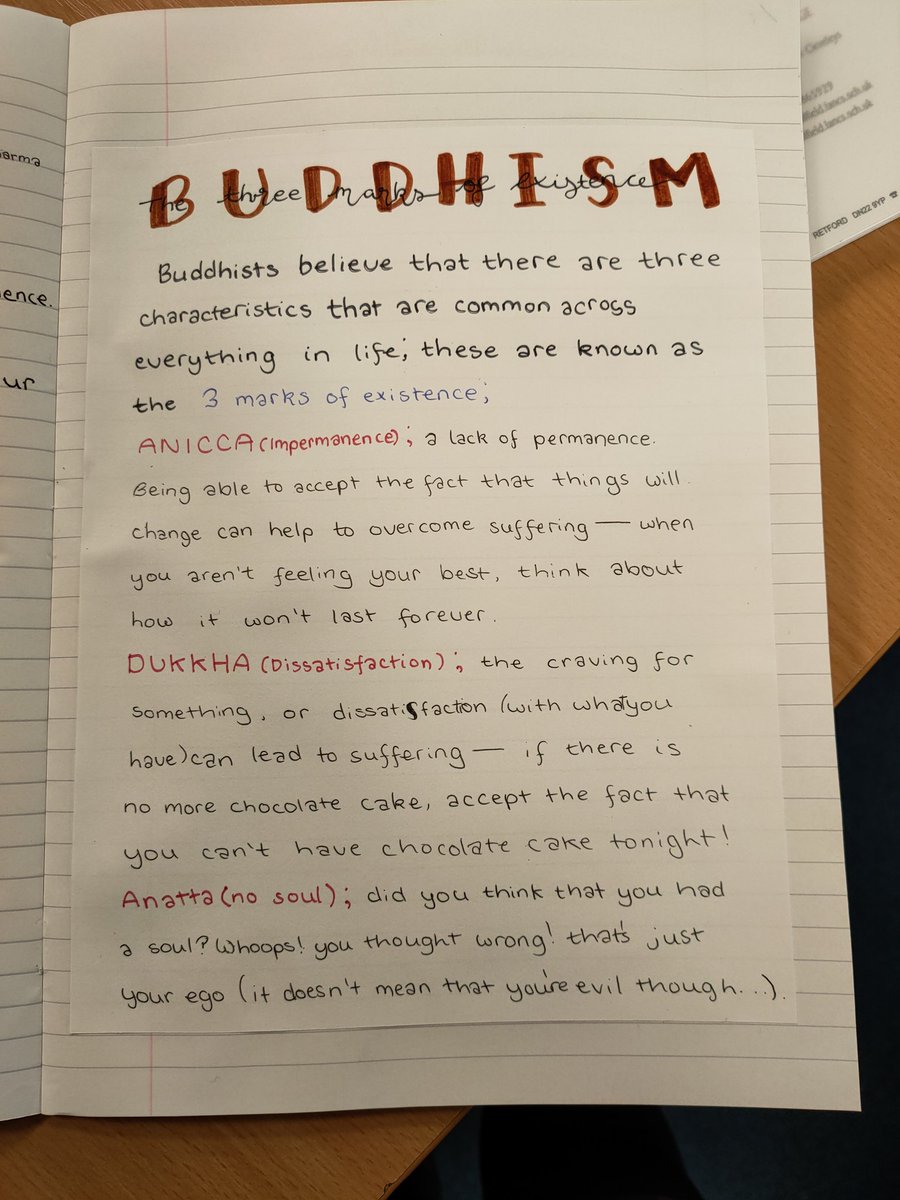 arma
ence.
ur
BUDDHISM
the three marks of existence
Buddhists believe that there are three
characteristics that are common across
everything in life; these are known as
the 3 marks of existence;
ANICCA (Impermanence); a lack of permanence.
Being able to accept the fact that things will
change can help to overcome suffering — when
you aren't feeling your best, think about
how it won't last forever.
DUKKHA (Dissatisfaction); the craving for
something, or dissatisfaction (with what you
have) can lead to suffering — if there is
no more chocolate cake, accept the fact that
you can't have chocolate cake tonight!
Anatta (no soul); did you think that you had
a soul? Whoops! you thought wrong! that's just
your ego (it doesn't mean that you're evil though...).
RETFORD DN22 9YP